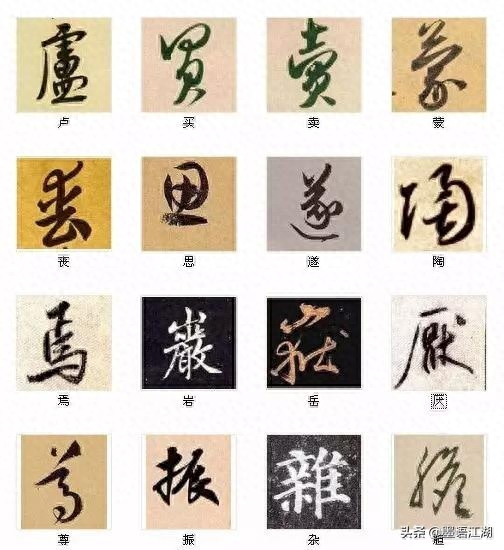 盧 買 賣 蒙
卢 买 卖 蒙
喪 思 遂 陶
丧 思 遂 陶
焉 巖 嶽 厭
焉 岩 岳 厌
尊 振 雜
尊 振 杂
头条 @墨语江湖